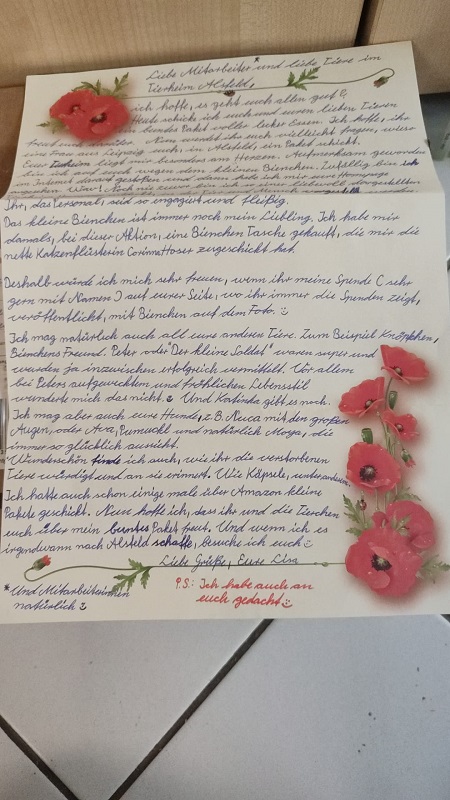 Liebe Mitarbeiter* und liebe Tiere im
Tierheim Alsfeld,
ich hoffe, es geht euch allen gut &
Heute schicke ich euch und euren lieben Tieren
ein buntes Paket voller lecker Essen. Ich hoffe, ihr
freut euch darüber. Nun werdet ihr euch vielleicht fragen, wieso
eine Frau aus Leipzig euch, in Alsfeld, ein Paket schickt.
Euer Tierheim liegt mir besonders am Herzen. Aufmerksam geworden
bin ich auf euch wegen dem kleinen Bienchen. Zufällig bin ich
im Internet darauf gestoßen und dann habe ich mir eure Homepage
angesehen. Wow! Noch nie zuvor bin ich so einer liebevoll dargestellten
Ihr, das Personal, seid so engagiert und fleißig.
Das kleine Bienchen ist immer noch mein Liebling. Ich habe mir
damals, bei dieser Aktion, eine Bienchen Tasche gekauft, die mir die
nette Katzenflüsterin Corinna Hoser zugeschickt hat.
Deshalb würde ich mich sehr freuen, wenn ihr meine Spende (sehr
gern mit Namen) auf eurer Seite, wo ihr immer die Spenden zeigt,
veröffentlicht, mit Bienchen auf dem Foto. ☺
Ich mag natürlich auch all eure anderen Tiere. Zum Beispiel Knöpfchen,
Bienchens Freund. Peter oder "Der kleine Soldat" waren super und
wurden ja inzwischen erfolgreich vermittelt. Vor allem
bei Peters aufgewecktem und fröhlichen Lebensstil
wunderte mich das nicht. ☺ Und Katinda gibt es noch.
Ich mag aber auch eure Hunde, z.B. Neuca mit den großen
Augen, oder Ava, Pumuckl und natürlich Moga, die
immer so glücklich aussieht.
Wunderschön finde ich auch, wie ihr die verstorbenen
Tiere würdigt und an sie erinnert. Wie Käpsele, unter anderem.
Ich hatte auch schon einige male über Amazon kleine
Pakete geschickt. Nun hoffe ich, dass ihr und die Tierchen
euch über mein buntes Paket freut. Und wenn ich es
irgendwann nach Alsfeld schaffe, besuche ich euch ☺
Liebe Grüße, Eure Lisa
*Und Mitarbeiterinnen
natürlich ☺
P.S.: Ich habe auch an
euch gedacht ☺